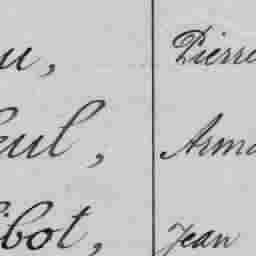 u, Pierre
eul, Arma
ibot, Jean